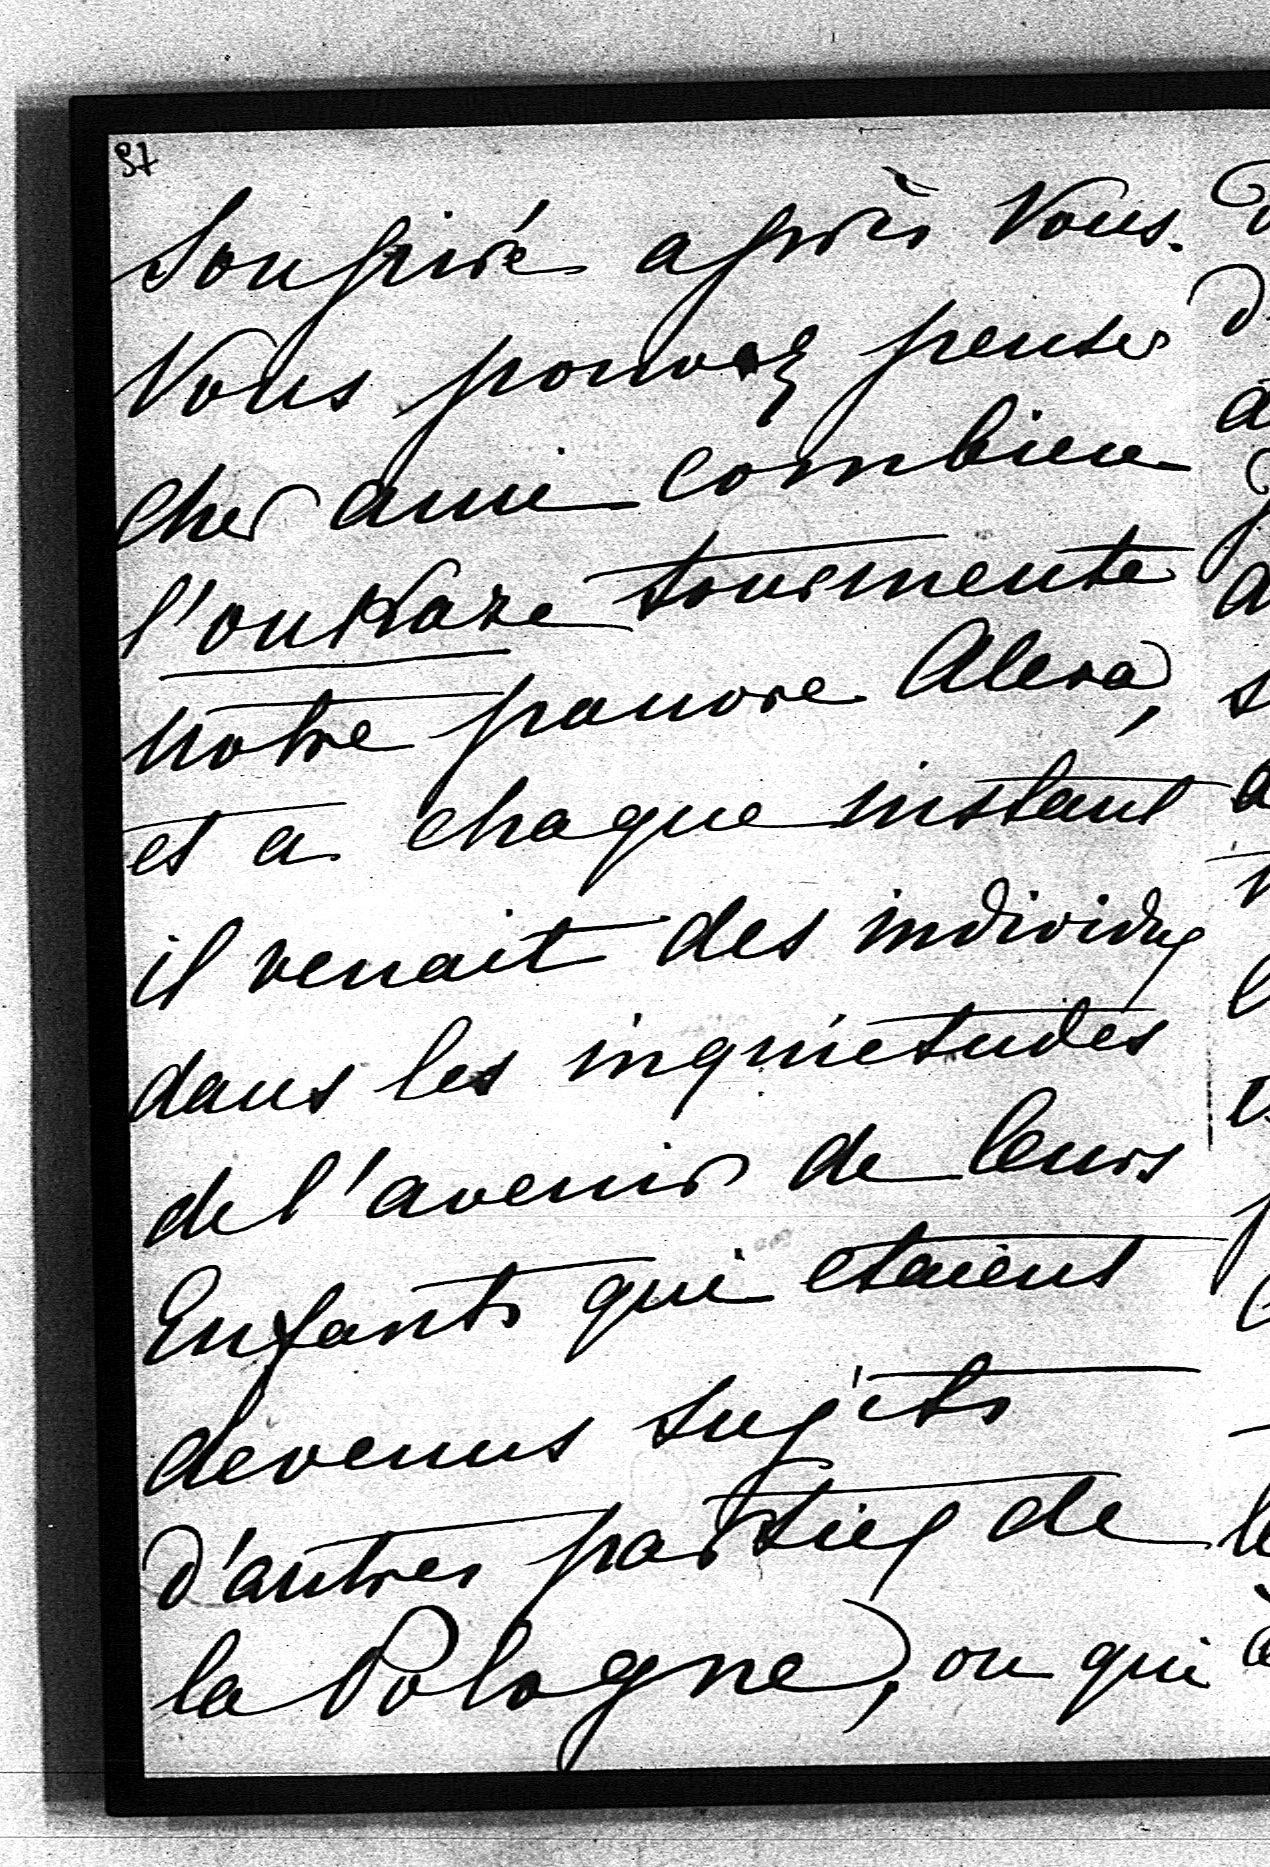 37
soupiré après Vous.
Vous pouvez penser
cher ami combien
l'oukaze tourmente
notre pauvre Alexa,
et a chaque instant
il venait des individus
dans les inquiétudes
de l'avenir de leurs
Enfants qui etaient
devenus sujets
d'autres parties de
la Pologne, ou qui